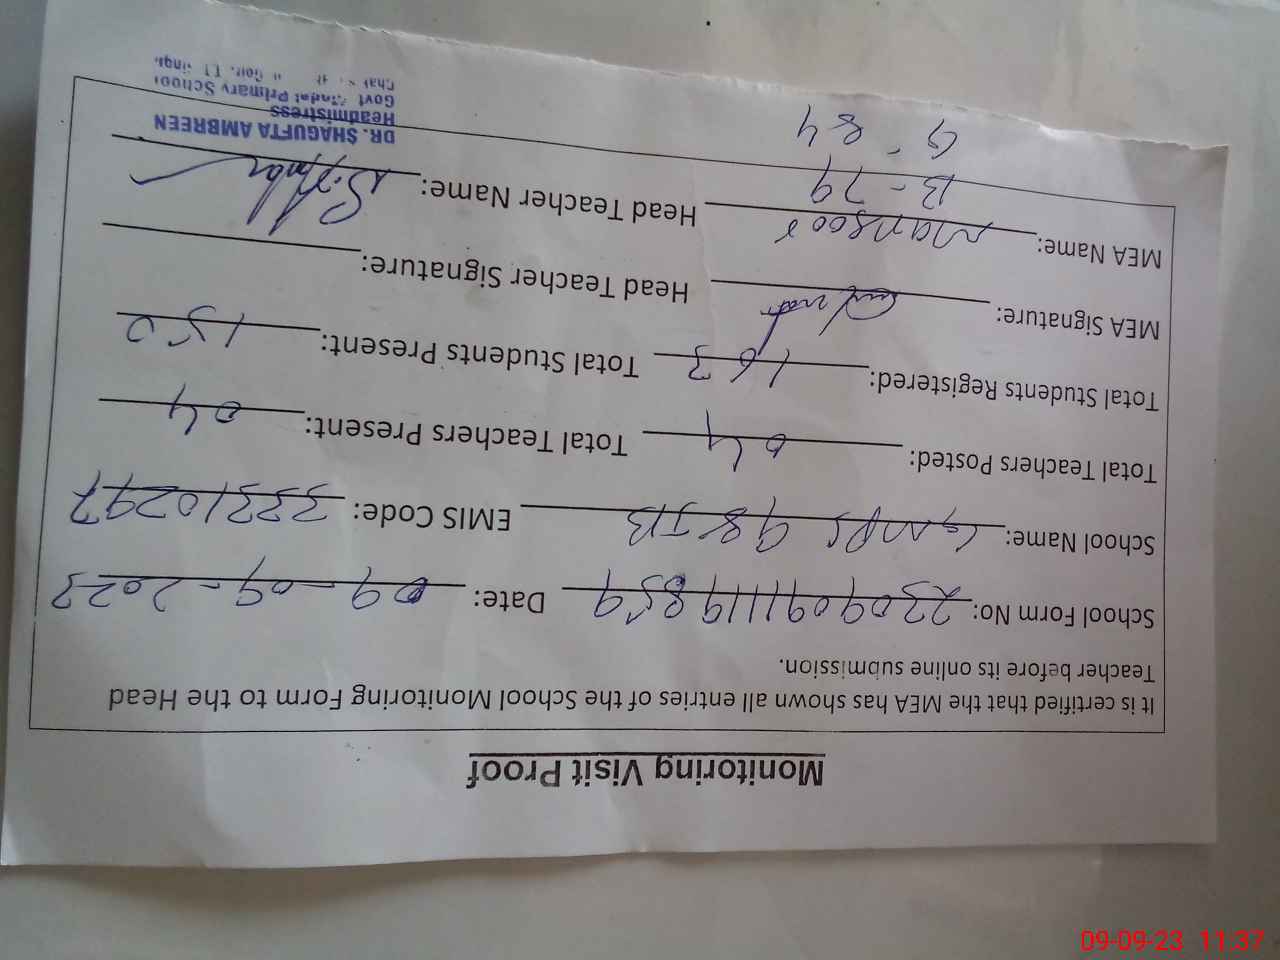 Monitoring Visit Proof
It is certified that the MEA has shown all entries of the School Monitoring Form to the Head
Teacher before its online submission.
School Form No: 23090911198859 Date: 09-09-2023
School Name: GMPS 98 JB EMIS Code: 33310297
Total Teachers Posted: 04 Total Teachers Present: 04
Total Students Registered: 163 Total Students Present: 150
MEA Signature: Head Teacher Signature:
MEA Name: Mansoor Head Teacher Name:
B - 79
G - 84
DR. SHAGUFTA AMBREEN
Headmistress
Govt Model Primary School
Chak
09-09-23 11:37